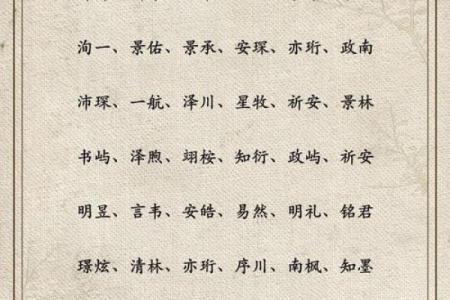 洵一、景佑、景承、安琛、亦珩、政南
沛琛、一航、泽川、星牧、祈安、景林
书屿、泽煦、翊桉、知衍、政屿、祈安
明昱、言韦、安皓、易然、明礼、铭君
璟炫、清林、亦珩、序川、南枫、知墨